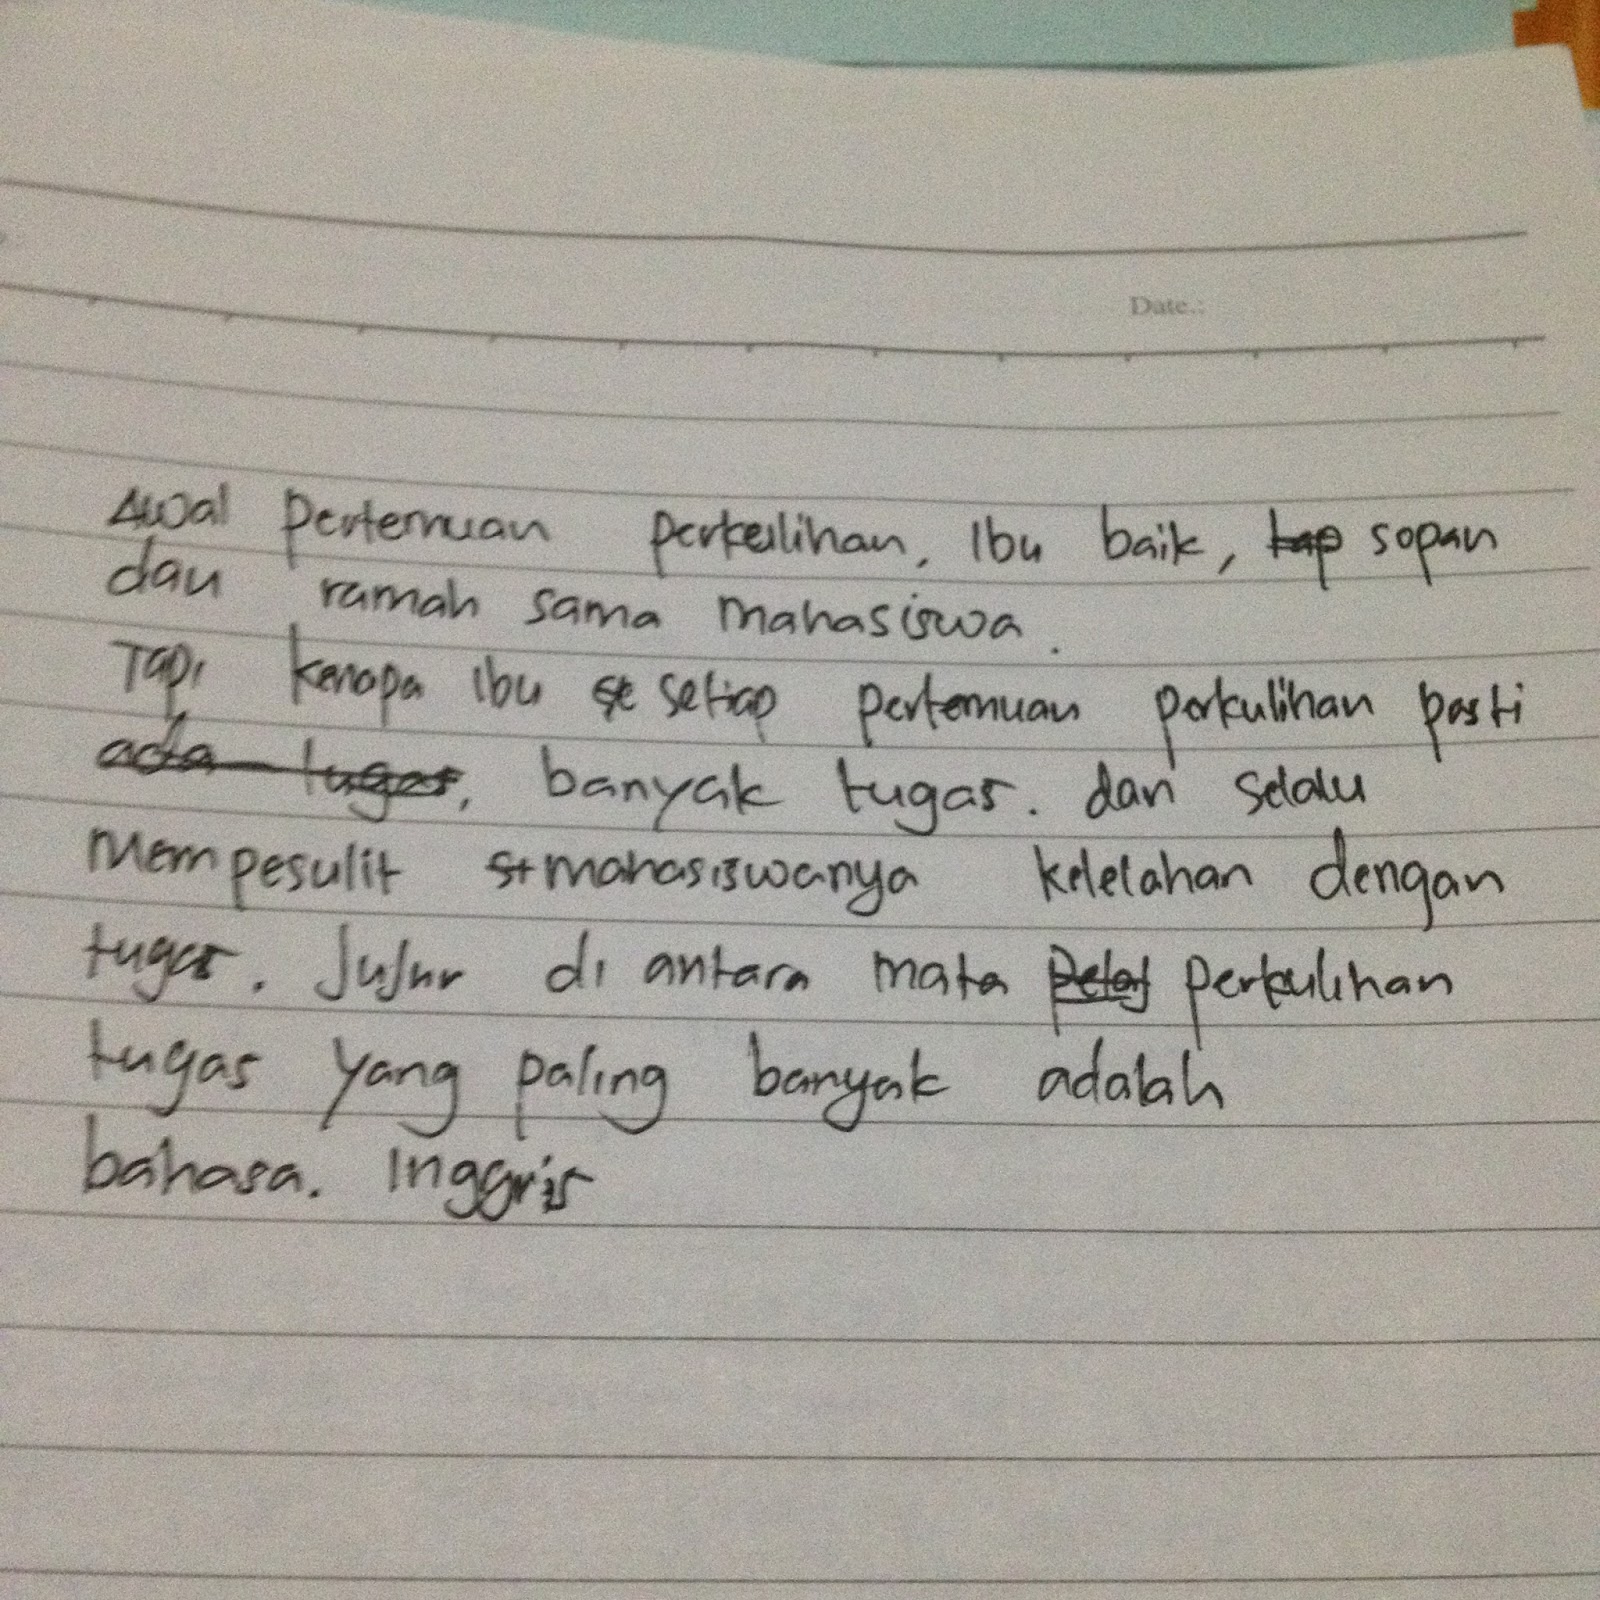 Date.:
Awal pertemuan perkulihan, Ibu baik, tap sopan
dan ramah sama mahasiswa.
Tapi kenapa ibu se setiap pertemuan perkulihan pasti
ada tugas, banyak tugas. dan selalu
mempesulit st mahasiswanya kelelahan dengan
tugas. Jujur di antara mata pelaj perkulihan
tugas yang paling banyak adalah
bahasa. Inggris